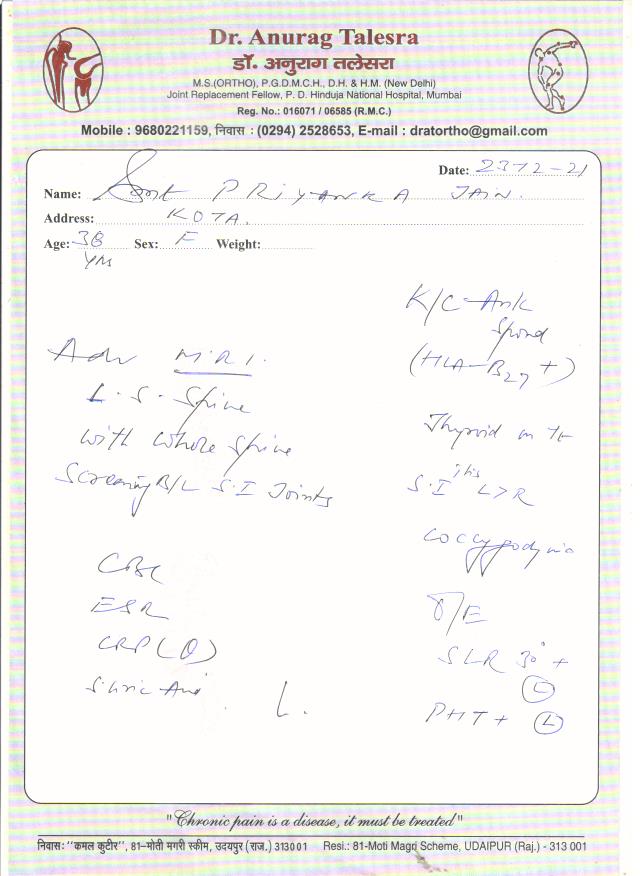 Dr. Anurag Talesra
डॉ. अनुराग तलेसरा
M.S.(ORTHO), P.G.D.M.C.H., D.H. & H.M. (New Delhi)
Joint Replacement Fellow, P. D. Hinduja National Hospital, Mumbai
Reg. No.: 016071 / 06585 (R.M.C.)
Mobile : 9680221159, निवास : (0294) 2528653, E-mail : dratortho@gmail.com
Date: 23-12-21
Name: Smt PRIYANKA JAIN.
Address: KOTA.
Age: 38 Sex: F Weight:
K/C Ank
Spond
(HLA-B27 +)
Thyroid on
S.I itis L>R
coccygodynia
O/E
SLR 30° +
(L)
PHT + (L)
Adv MRI.
L.S. Spine
with whole Spine
Screening B/L S.I Joints
CBC
ESR
CRP (Q)
S. Uric Acid
"Chronic pain is a disease, it must be treated"
निवास: "कमल कुटीर", 81-मोती मगरी स्कीम, उदयपुर (राज.) 313001 Resi.: 81-Moti Magri Scheme, UDAIPUR (Raj.) - 313 001